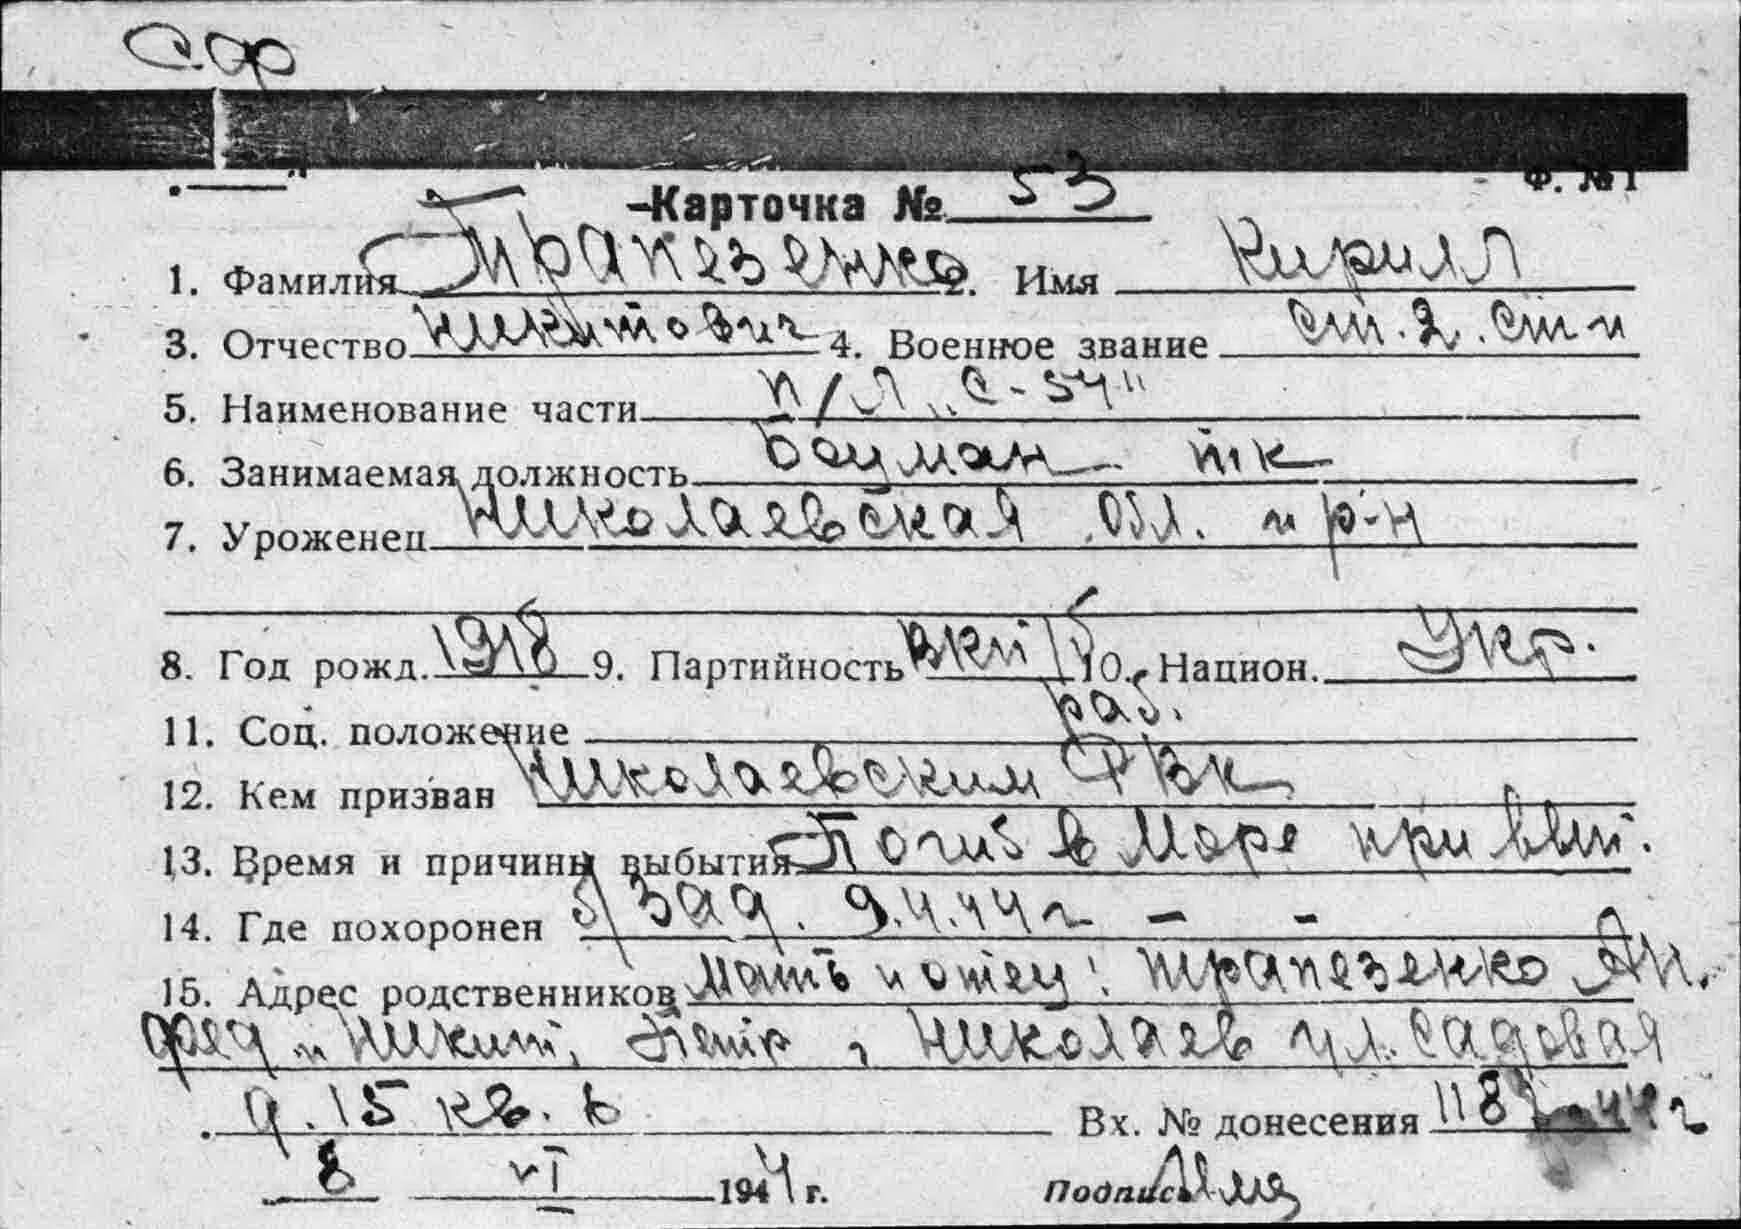 С.Ф
Ф. № 1
Карточка № 53
1. Фамилия Трапезенко 2. Имя Кирилл
3. Отчество Никитович 4. Военное звание ст. 2. ст-и
5. Наименование части п/л „С-54"
6. Занимаемая должность Боцман
7. Уроженец Николаевская обл. и р-н
8. Год рожд. 1918 9. Партийность ВКП/б 10. Национ. Укр.
11. Соц. положение раб.
12. Кем призван Николаевским РВК
13. Время и причины выбытия Погиб в море при вып.
14. Где похоронен б/зад. 9.4.44 г - -
15. Адрес родственников мать и отец: Трапезенко Ан.
и Никит, г Николаев ул. Садовая
д. 15 кв. 6
Вх. № донесения 44 г
8 VI 1944 г.
Подпись